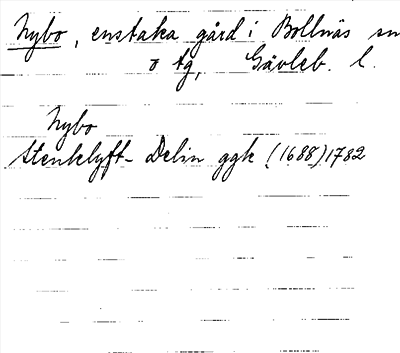 Nybo, enstaka gård i Bollnäs sn
o tg, Gävleb. l.
Nybo
Stenklyft- Delin ggk (1688) 1782